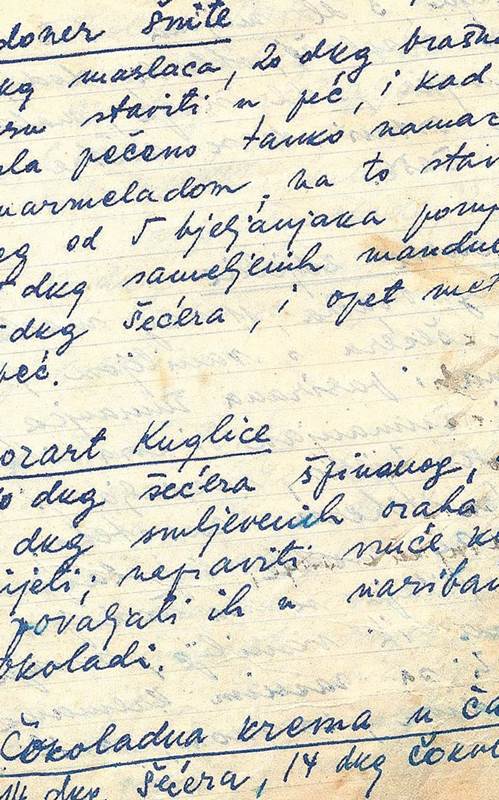 doner šnite
kg maslaca, 20 dkg brašna
staviti u peć, i kad
pečeno tanko namaz
marmeladom, na to stav
eg od 5 bjeljanjaka pomj
dkg sameljenih mandul
dkg šećera, i opet met
peć.
ozart Kuglice
dkg šećera špinanog,
dkg smljevenih oraha
ijeli; napraviti vruće k
povaljati ih u nariban
okoladi.
Čokoladna krema u ča
14 dkg šećera, 14 dkg čoko